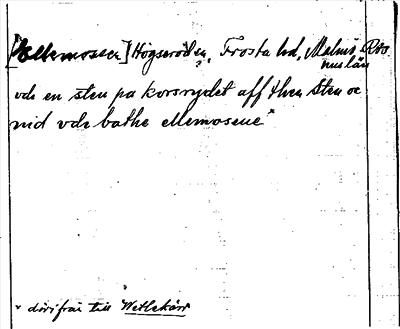 [Ellemossen] Högseröd sn, Frosta hd, Malmö
hus län
vdi en sten pa korsrydet aff then Sten oc
nid vdi bathe ellemosene*
* därifrån till Wetlekärr